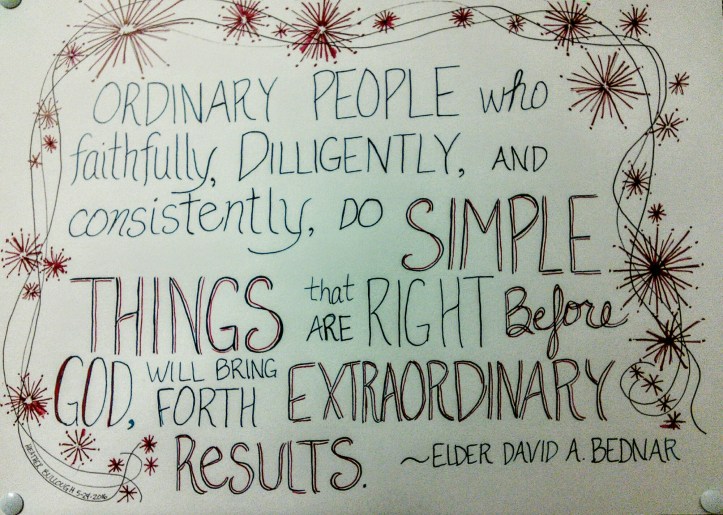 ORDINARY PEOPLE who
faithfully, DILLIGENTLY, AND
consistently, DO SIMPLE
THINGS that ARE RIGHT Before
GOD, WILL BRING FORTH EXTRAORDINARY
RESULTS. ~ELDER DAVID A. BEDNAR
HEATHER BULLOUGH 5-24-2016